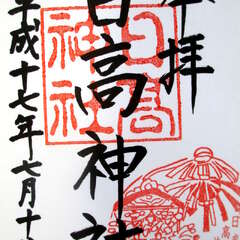 奉拝
日高神社
平成十七年七月十
日高
神社
日高